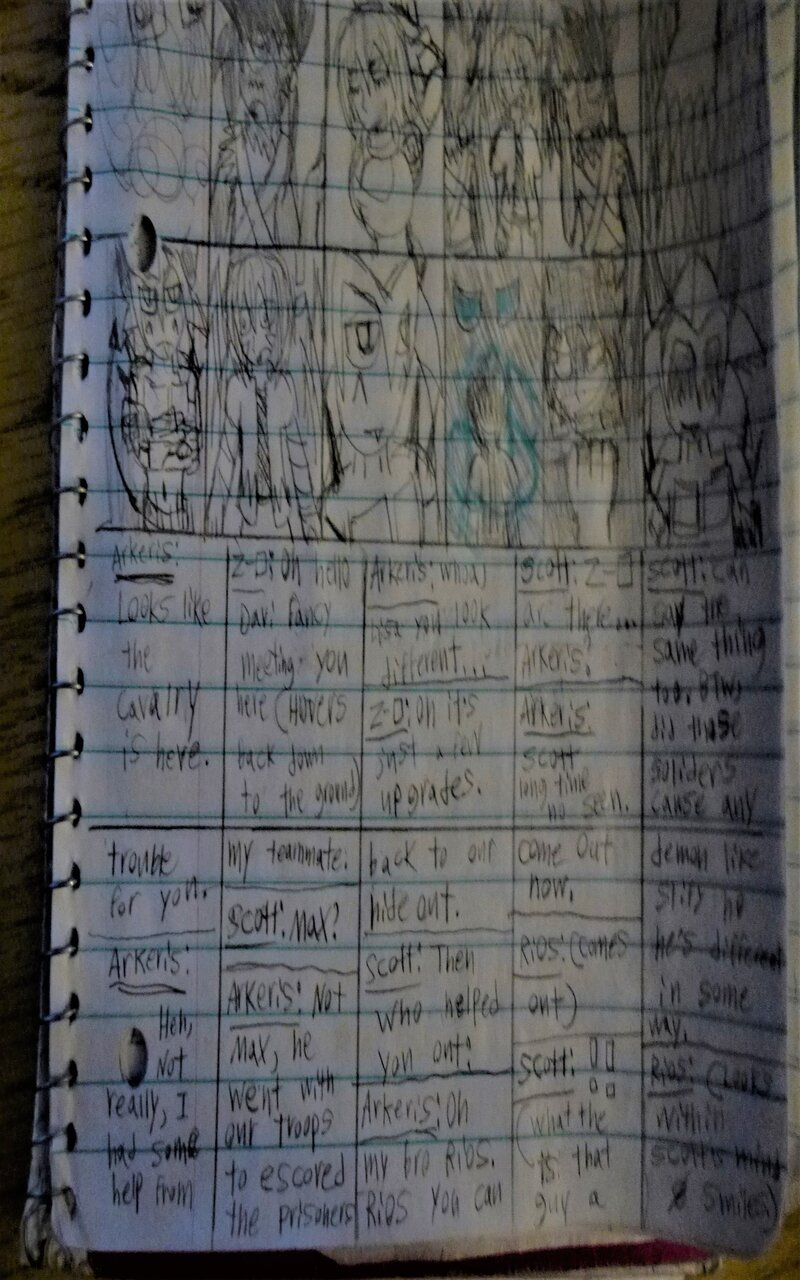 Arkeris:
Looks like
the
cavalry
is here.
Z-D: Oh hello
Dari fancy
meeting you
here (Hovers
back down
to the ground)
Arkeris: whoa,
you look
different...
Z-D: Oh it's
just a few
upgrades.
Scott: Z-D
are there...
Arkeris?
Arkeris:
Scott
long time
no seen.
Scott: Can
say the
same thing
too. BTW,
did those
soliders
cause any
trouble
for you.
Arkeris:
Heh,
Not
really, I
had some
help from
my teammate.
Scott: Max?
Arkeris: Not
Max, he
went with
our troops
to escored
the prisoners
back to our
hide out.
Scott: Then
who helped
you out?
Arkeris: Oh
my bro Ribs.
Ribs you can
come out
now.
Ribs: (comes
out)
Scott: !!
(what the
is that
guy a
demon like
no
he's different
in some
way.
Ribs: (Looks
within
Scott's mind
& smiles)